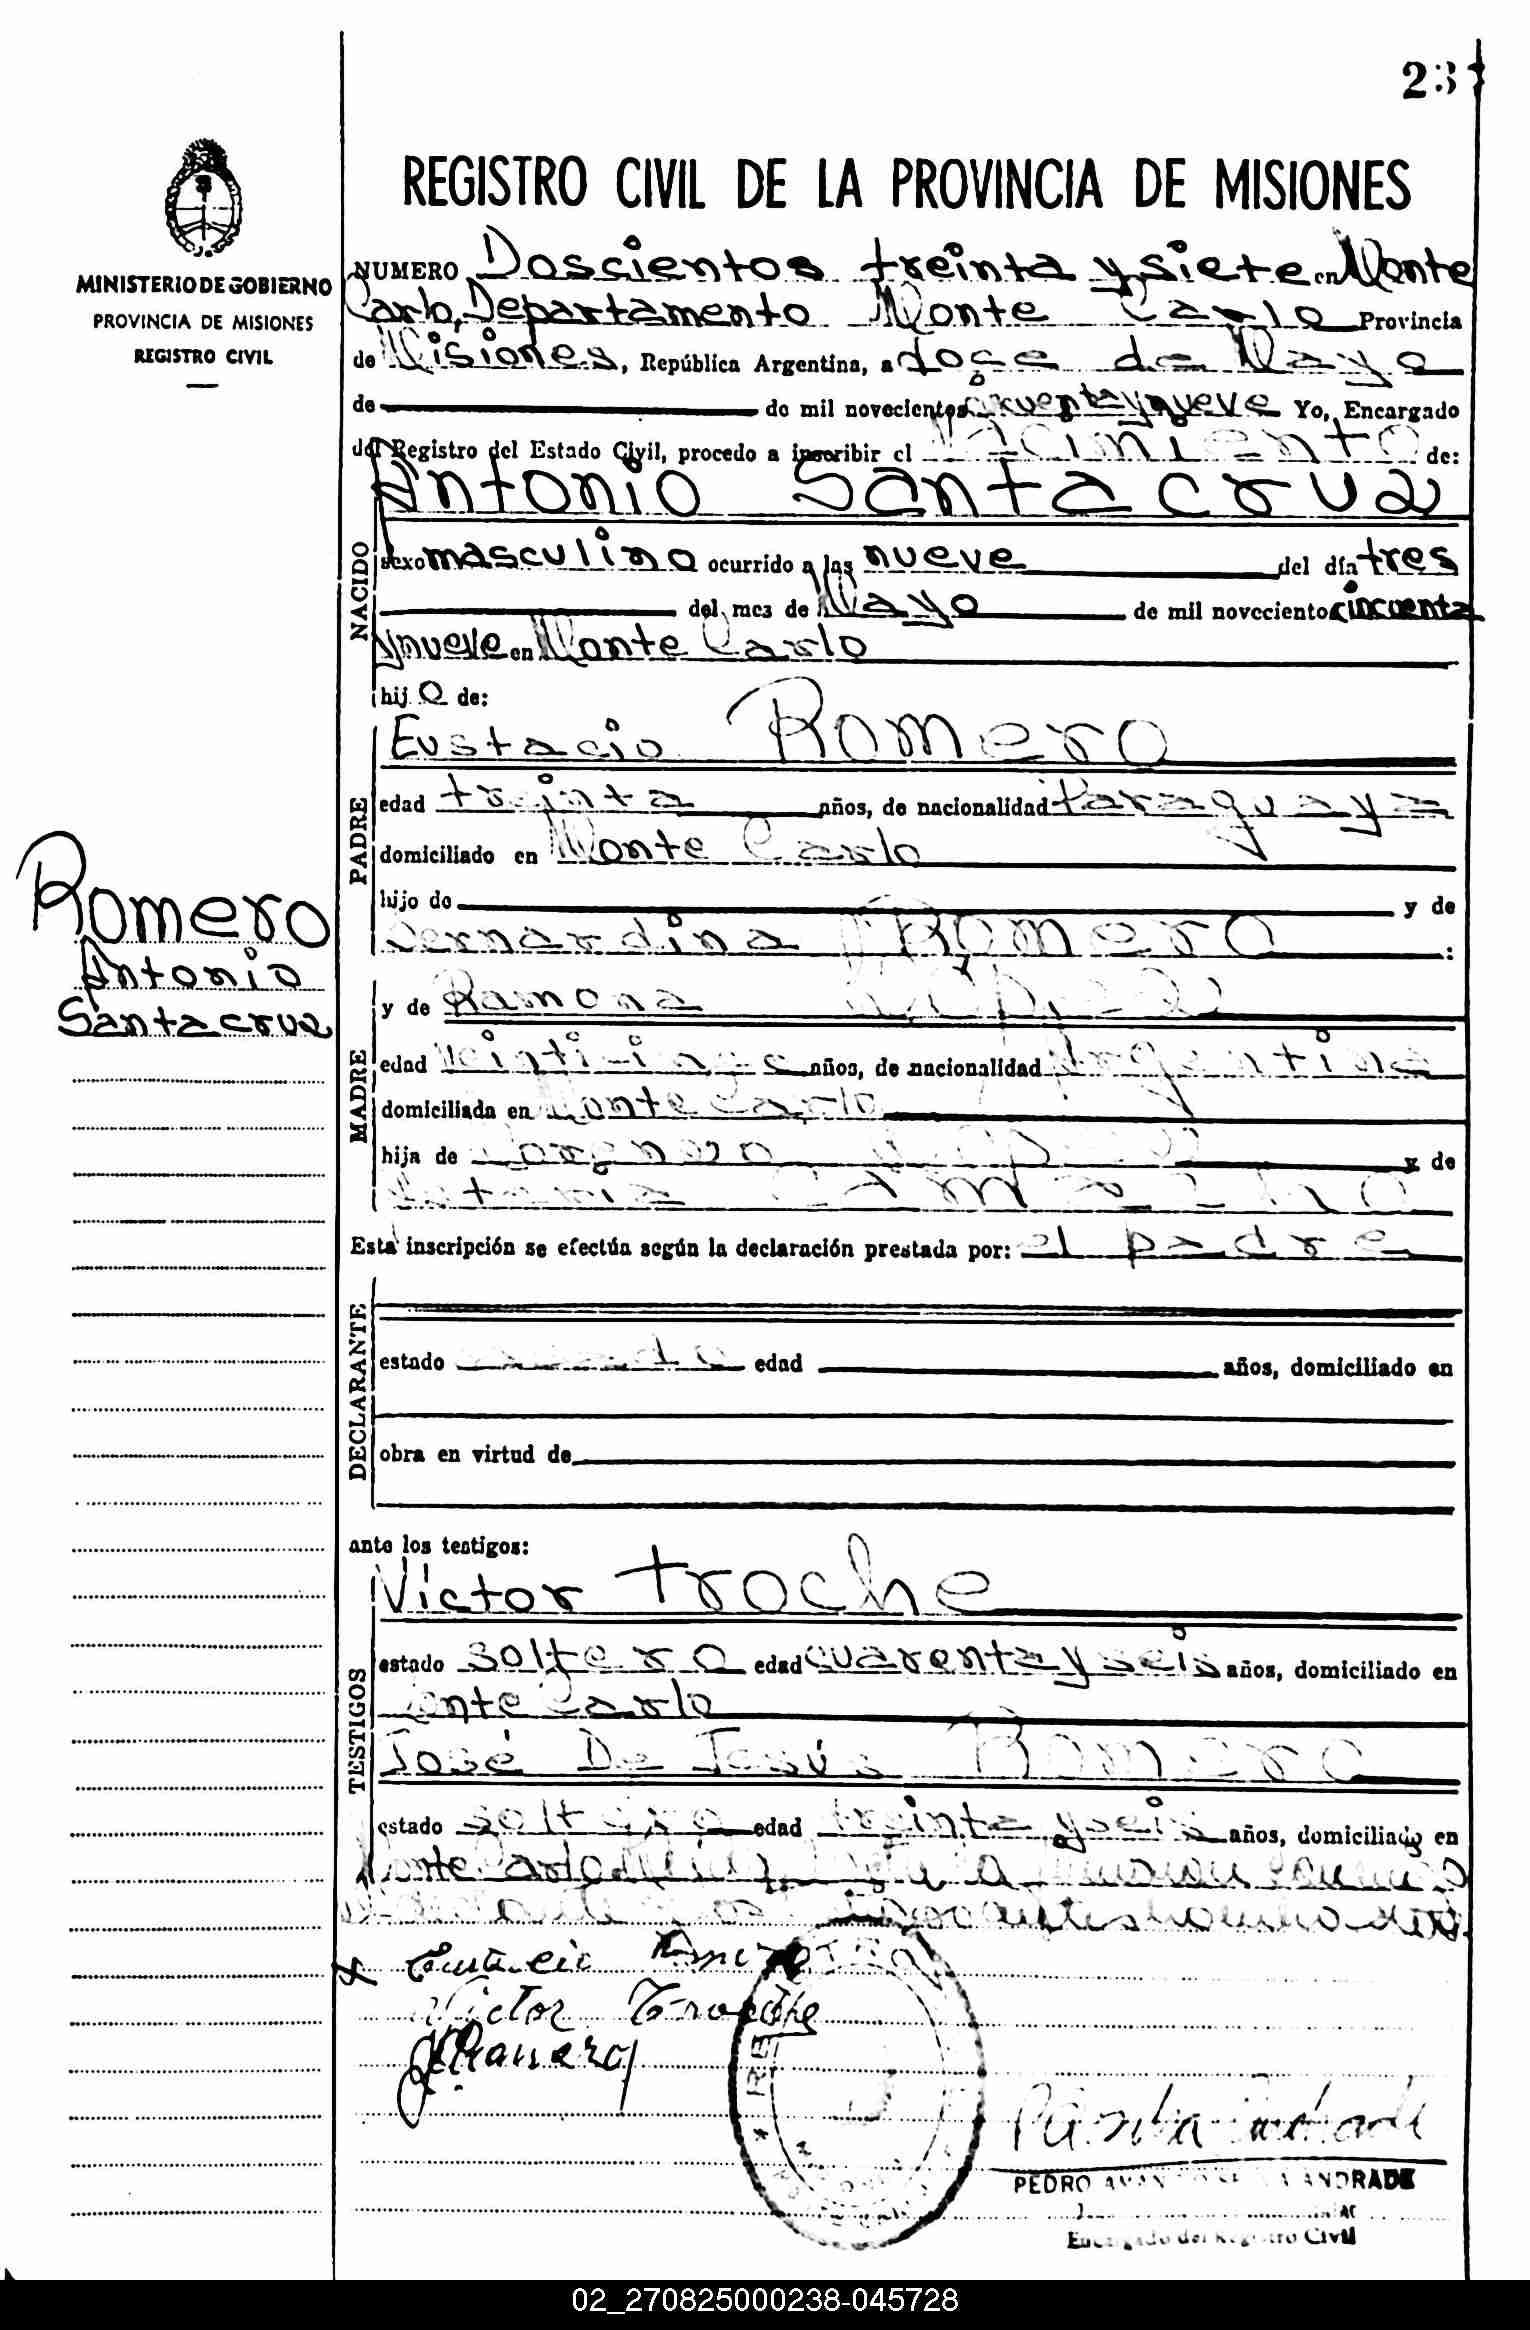 23
REGISTRO CIVIL DE LA PROVINCIA DE MISIONES
MINISTERIO DE GOBIERNO
PROVINCIA DE MISIONES
REGISTRO CIVIL
NUMERO Doscientos treinta y siete en Monte
Carlo, Departamento Monte Carlo Provincia
de Misiones, República Argentina, a doce de Mayo
de de mil novecientos cincuenta y nueve Yo, Encargado
del Registro del Estado Civil, procedo a inscribir el Nacimiento de:
Antonio Santacruz
NACIDO
sexo masculino ocurrido a las nueve del día tres
del mes de Mayo de mil noveciento cincuenta
y nueve en Monte Carlo
hijo de:
PADRE
Eustacio Romero
edad treinta años, de nacionalidad Paraguaya
domiciliado en Monte Carlo
hijo de y de
Bernardina Romero:
Romero
Antonio
Santacruz
MADRE
y de Ramona
edad años, de nacionalidad Argentina
domiciliada en Monte Carlo
hija de y de
Esta inscripción se efectúa según la declaración prestada por: el padre
DECLARANTE
estado edad años, domiciliado en
obra en virtud de
ante los testigos:
TESTIGOS
Victor Troche
estado soltero edad cuarenta y seis años, domiciliado en
Monte Carlo
José De Jesús Romero
estado soltero edad treinta y seis años, domiciliado en
Monte Carlo
Eustacio Romero
Victor Troche
J Romero
PEDRO ANDRADE
Encargado del Registro Civil
02_270825000238-045728